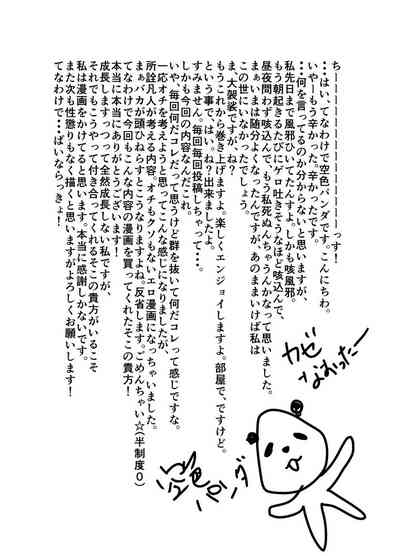 ちーーーーーーーーーーーーーっす！
・・はい、てなわけで空色パンダです。こんにちわ。
いやーもう辛かった。辛かったです。
・・何を言ってるのか分からないと思いますが、
私先日まで風邪ひいてたんすよ。しかも咳風邪。
もう朝起きるたびにゲロ吐きそうなほど咳込んで、
昼夜問わず咳込んで、もう私死ぬんちゃうんかなって思いました。
まぁいまは随分よくなったんですが、あのままいけば私は
この世にいなかったでしょう。
ま、大袈裟ですが、ね？
もうこれから巻き上げますよ。楽しくエンジョイしますよ。部屋で、ですけど。
という事で、はい。ね？出来ましたよ。
すみません。毎回毎回投稿しちゃって・・。
しかも今回の内容なんだこれ。
いや、毎回何だコレって思うけど群を抜いて何だコレって感じですな。
一応オチを考えようと思ってこんな感じになりましたが、
所詮凡人が考える内容。オチもクソもないエロ漫画になっちゃいました。
まぁバカが頭ひねらすとこうなりますよね。反省します。ごめんちゃい☆（半制度０）
てなわけで今回もこんな内容の漫画を買ってくれたそこの貴方！
本当に本当にありがとうございます！
成長しますつって全然成長しない私ですが、
それでもこうやって付き合ってくれるそこの貴方がいるこそ
私は漫画をかけてると思います。本当に感謝しかないです。
また次も性懲りもなく描くと思いますがよろしくお願いします！
てなわけで・・ばいならっきょ！
カゼ
なおったー
空色
パンダ